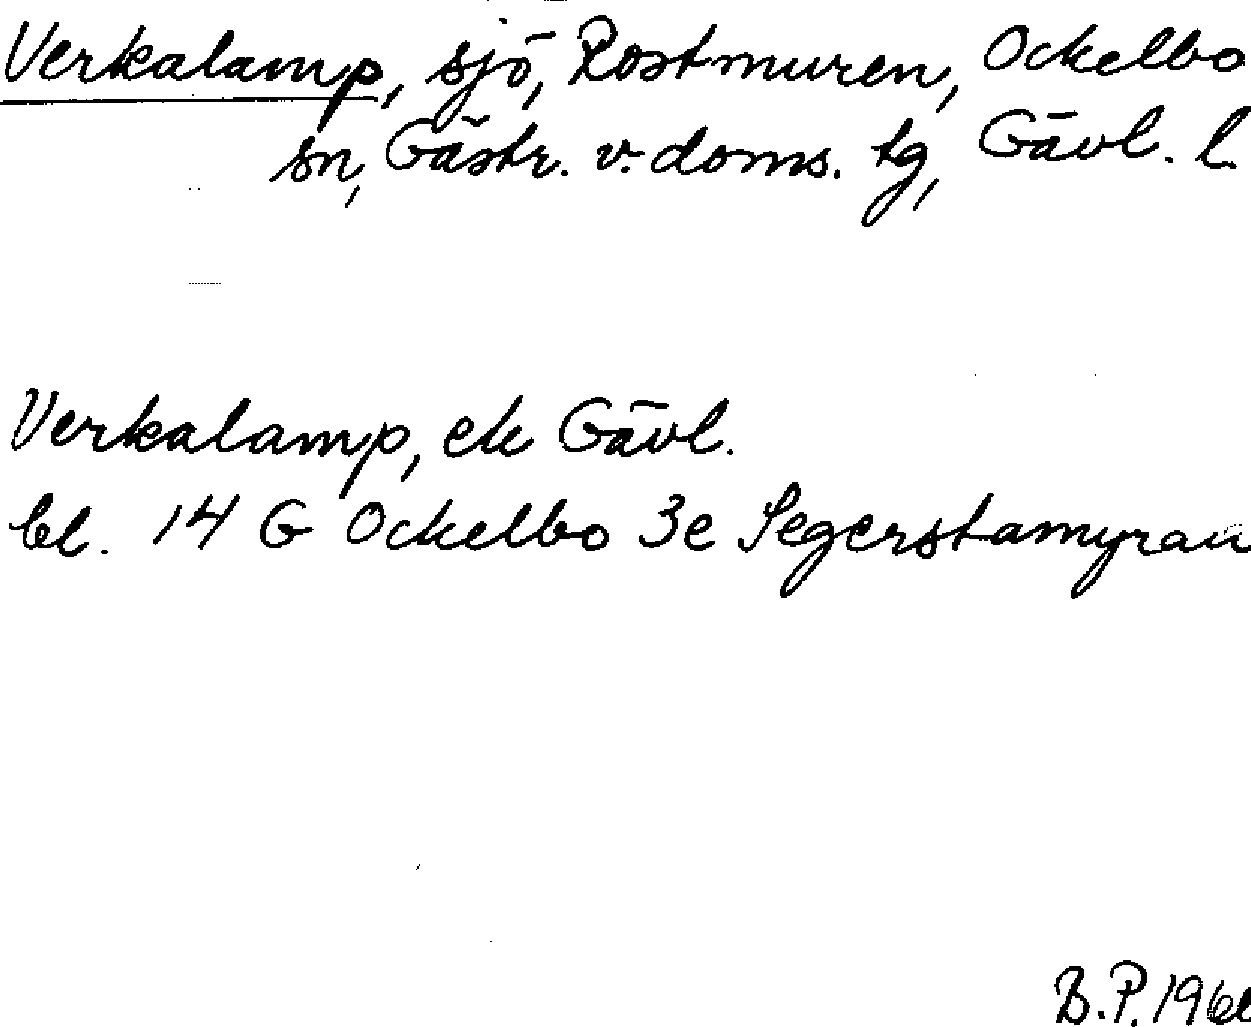 Verkalamp, sjö, Rostmuren, Ockelbo
sn, Gästr. v. doms. tg, Gävl. l.
Verkalamp, ek Gävl.
bl. 14 G Ockelbo 3e Segerstamyran
B.P. 196